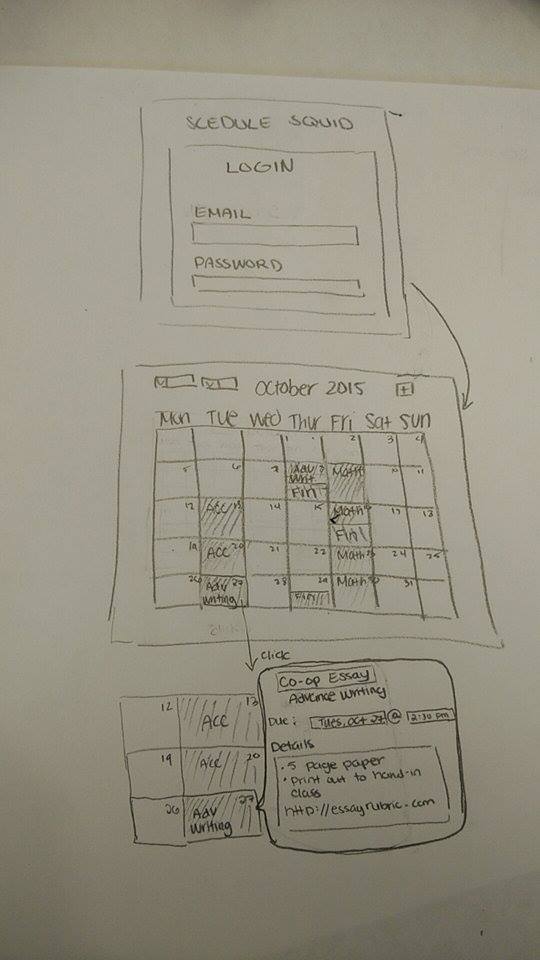 SCEDULE SQUID
LOGIN
EMAIL
PASSWORD
October 2015
+
Mon Tue Wed Thur Fri Sat Sun
1 2 3 4
5 6 Adv Writ Fin Math 10 11
12 Acc 13 14 15 Math Fin 17
19 Acc 20 21 22 Math 24 25
26 Adv Writing 27 28 29 Math 31
click
12 13 Acc
19 Acc 20
26 Adv Writing 27
Co-op Essay
Advance Writing
Due: Tues, Oct 27 @ 2:30 pm
Details
• 5 page paper
• print out to hand-in
class
http://essayrubric.com